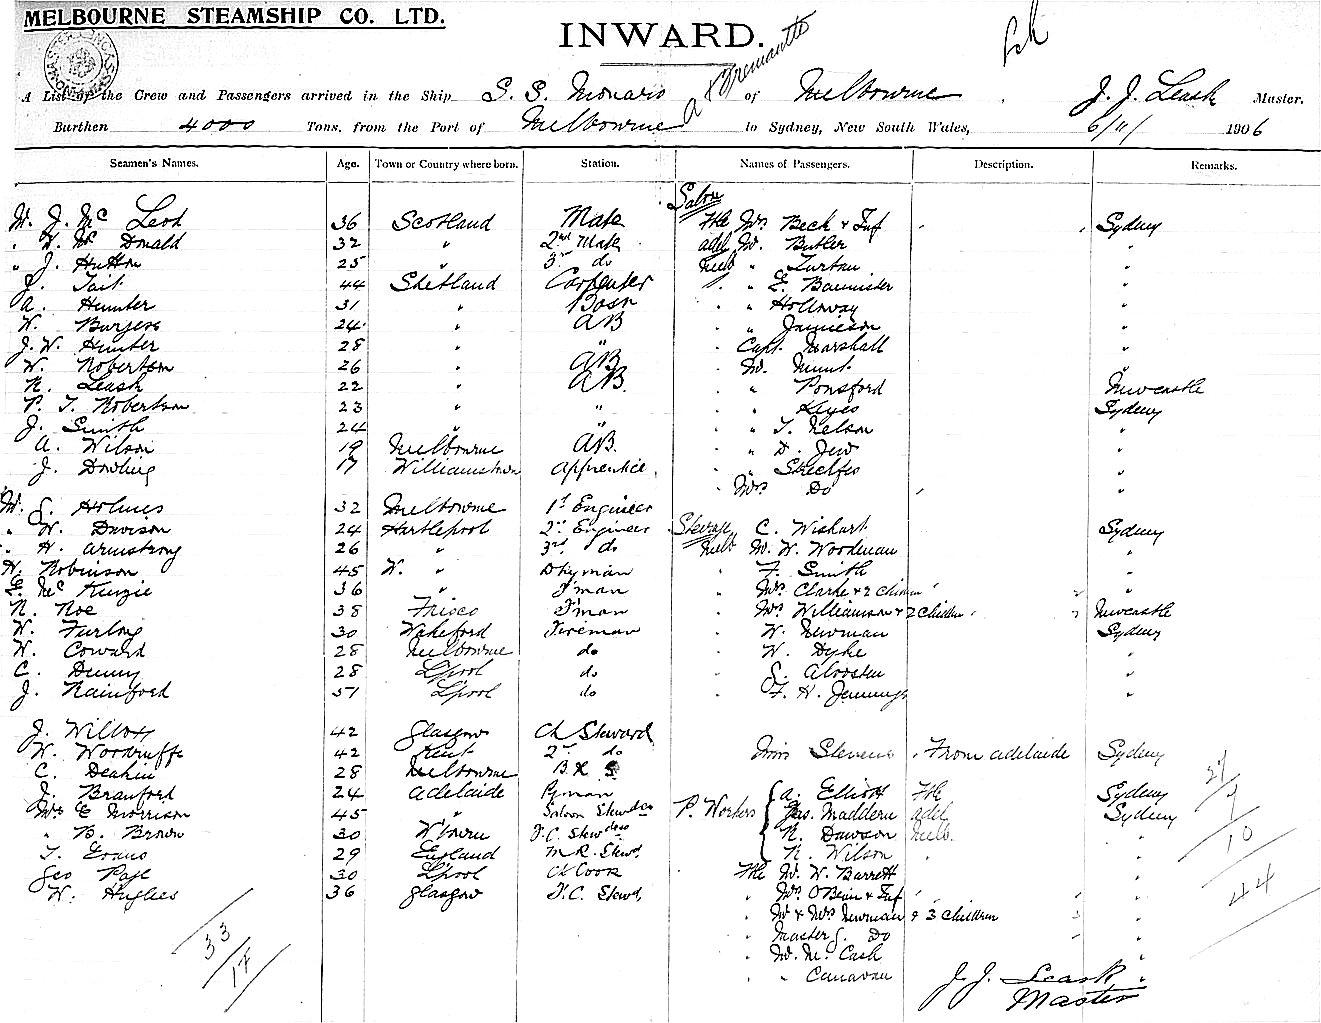 MELBOURNE STEAMSHIP CO. LTD.
INWARD.
& Fremantle
A List of the Crew and Passengers arrived in the Ship S. S. Monaro of Melbourne J. J. Leask Master.
Burthen 4000 Tons, from the Port of Melbourne to Sydney, New South Wales, 6/11/ 1906
Seamen's Names. Age. Town or Country where born. Station. Names of Passengers. Description. Remarks.
Saloon
36 Scotland Mate Mrs Beck & Inf Sydney
Donald 32 " 2nd Mate adel Mr. Butler "
" J. Hutton 25 " 3rd do melb " "
J. Tait 44 Shetland Carpenter " E. Bannister "
A. Hunter 31 " Bosn " Holloway "
W. Burgess 24 " AB " Jamieson "
J. W. Hunter 28 " " Capt. Marshall "
W. Robertson 26 " AB Mr. Hunt "
R. Leask 22 " AB. " Ponsford Newcastle
P. T. Robertson 23 " " " Keyes Sydney
J. Smith 24 " " T. Nelson "
A. Wilson 19 Melbourne AB. " D. "
J. Dowling 17 Williamstown Apprentice " "
Mrs Do "
Mr. G. Holmes 32 Melbourne 1st Engineer
" W. Davison 24 Hartlepool 2nd Engineer Steerage C. Wishart Sydney
" H. Armstrong 26 " 3rd do melb Mr. W. Woodman "
H. Robinson 45 W. " Dkyman F. Smith "
Mc Kenzie 36 " F'man Mrs Clarke & 2 children "
R. Roe 38 Frisco F'man Mrs Williamson & 2 children Newcastle
W. Furlong 30 Wakeford Fireman W. Newman Sydney
W. Coward 28 Melbourne do W. Dyke "
C. Denny 28 L'pool do "
J. Rainford 51 L'pool do F. H. Jennings "
J. 42 Glasgow Ch Steward
W. Woodruffe 42 Kent 2nd do Miss Stevens From Adelaide Sydney
C. Deakin 28 Melbourne B.K. 27
J. Branford 24 Adelaide P'man A. Elliott Fle Sydney 7
Mrs E Morrison 45 " Saloon Stewdess P. Workers Jas. Maddern adel Sydney
" B. Brown 30 F.C. Stewdess R. Dawson melb. " 10
T. Evans 29 England M.R. Stewd. R. Wilson "
Geo Page 30 L'pool Ch Cook Fle Mr. W. Barrett " 44
W. Hughes 36 Glasgow F.C. Stewd. Mrs O'Beirn & Inf "
33 Mr & Mrs Newman & 3 children "
17 Master G. Do "
Mr. M. Cash "
" Canavan "
J. J. Leask
Master